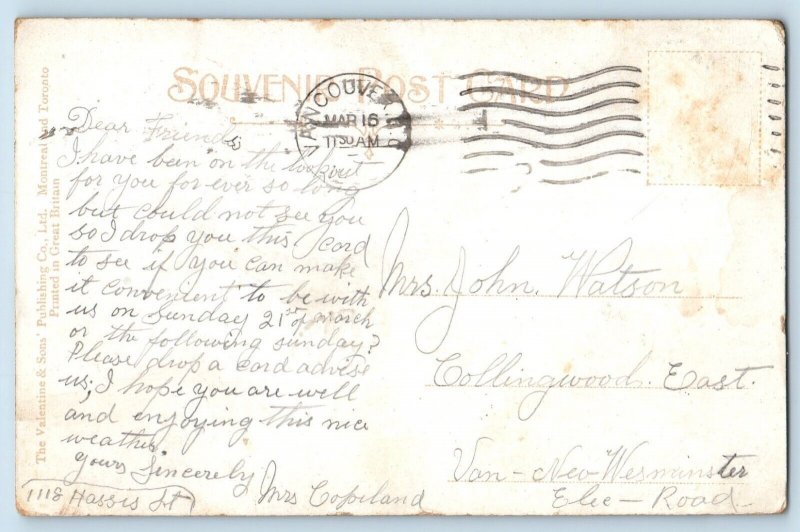 SOUVENIR POST CARD
VANCOUVER
MAR 16
11 30 AM
B.C.
The Valentine & Sons' Publishing Co., Ltd., Montreal and Toronto
Printed in Great Britain
Dear Friend
I have been on the lookout
for you for ever so long
but could not see you
so I drop you this card
to see if you can make
it convenient to be with
us on Sunday 21st of march
or the following sunday?
Please drop a card advise
us; I hope you are well
and enjoying this nice
weather
yours Sincerely
Mrs Copeland
1118 St
Mrs. John. Watson
Collingwood. East.
Van - New Wesminster
Elec - Road